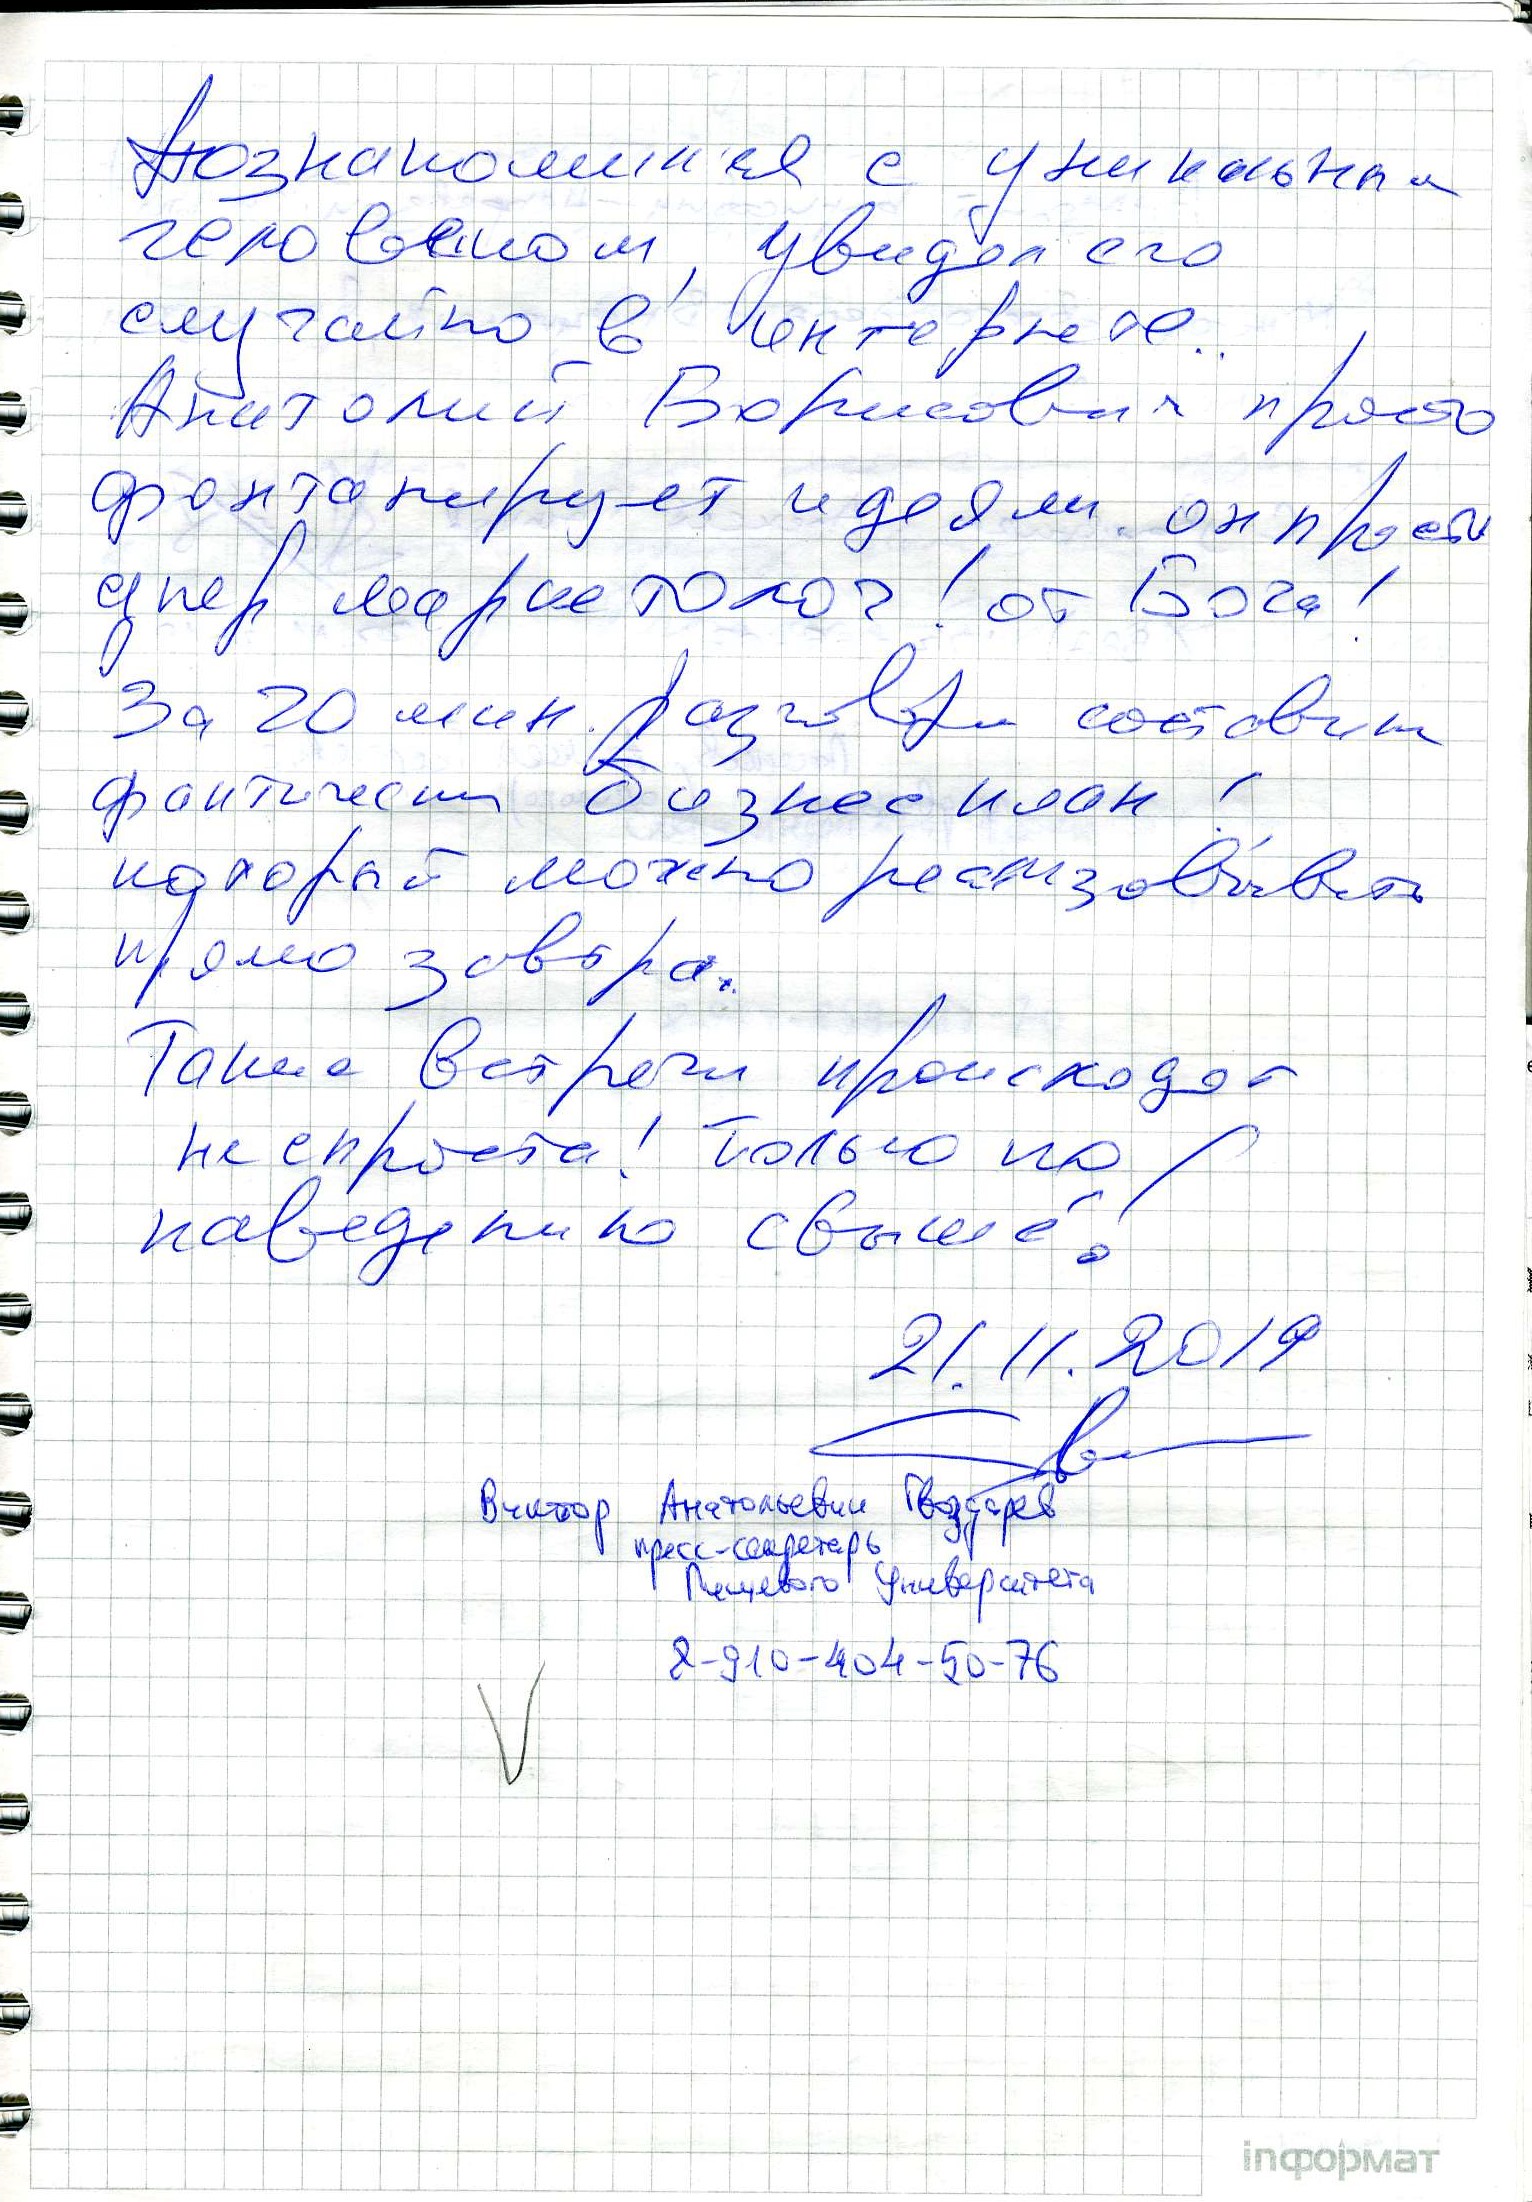 Познакомился с уникальным
человеком, увидел его
случайно в интернете..
Анатолий Борисович просто
фонтанирует идеями. он просто
супер маркетолог! от Бога!
За 20 мин. разговора составил
фактически бизнес план!
который можно реализовывать
прямо завтра.
Такие встречи происходят
не спроста! Только по
наведению свыше!
21.11.2019
Виктор Анатольевич Гвоздарев
пресс-секретарь
Пищевого Университета
8-910-404-50-76
inформат